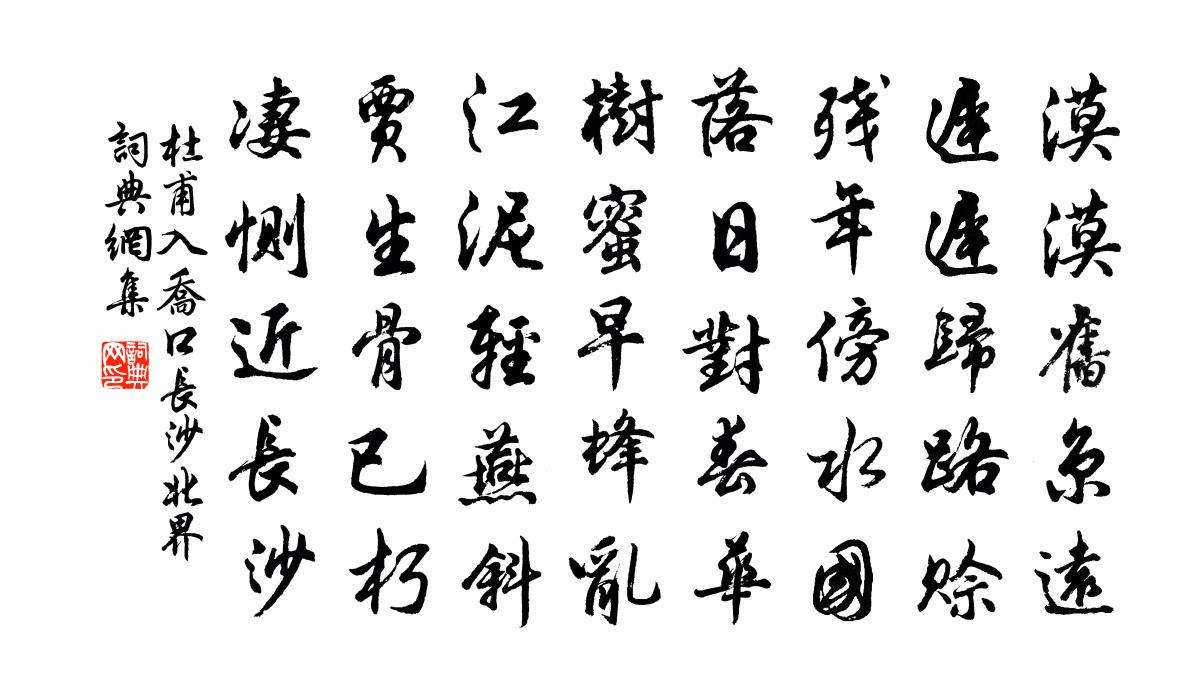 漠漠舊京遠
遲遲歸路賒
残年傍水國
落日對春華
樹蜜早蜂亂
江泥輕燕斜
賈生骨已朽
凄惻近長沙
杜甫入喬口長沙北界
詞典網集
詞典网印